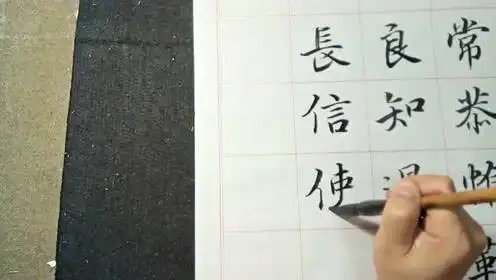 常恭惟
良知過
長信使